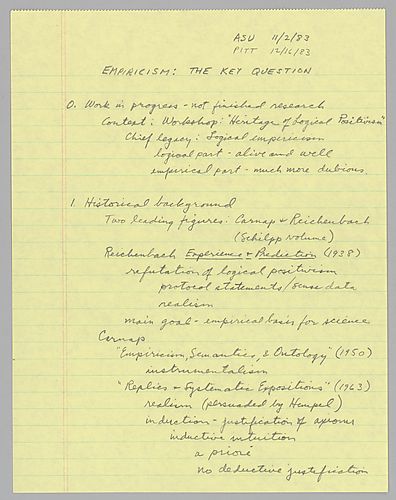 ASU 11/2/83
PITT 12/16/83
EMPIRICISM: THE KEY QUESTION
0. Work in progress - not finished research
Context: Workshop: "Heritage of Logical Positivism"
Chief legacy: Logical empiricism
logical part - alive and well
empirical part - much more dubious.
1. Historical background
Two leading figures: Carnap & Reichenbach
(Schilpp volume)
Reichenbach Experience & Prediction (1938)
refutation of logical positivism
protocol statements/sense data
realism
main goal - empirical basis for science
Carnap
"Empiricism, Semantics, & Ontology" (1950)
instrumentalism
"Replies & Systematic Expositions" (1963)
realism (persuaded by Hempel)
induction - justification of axioms
inductive intuition
a priori
no deductive justification